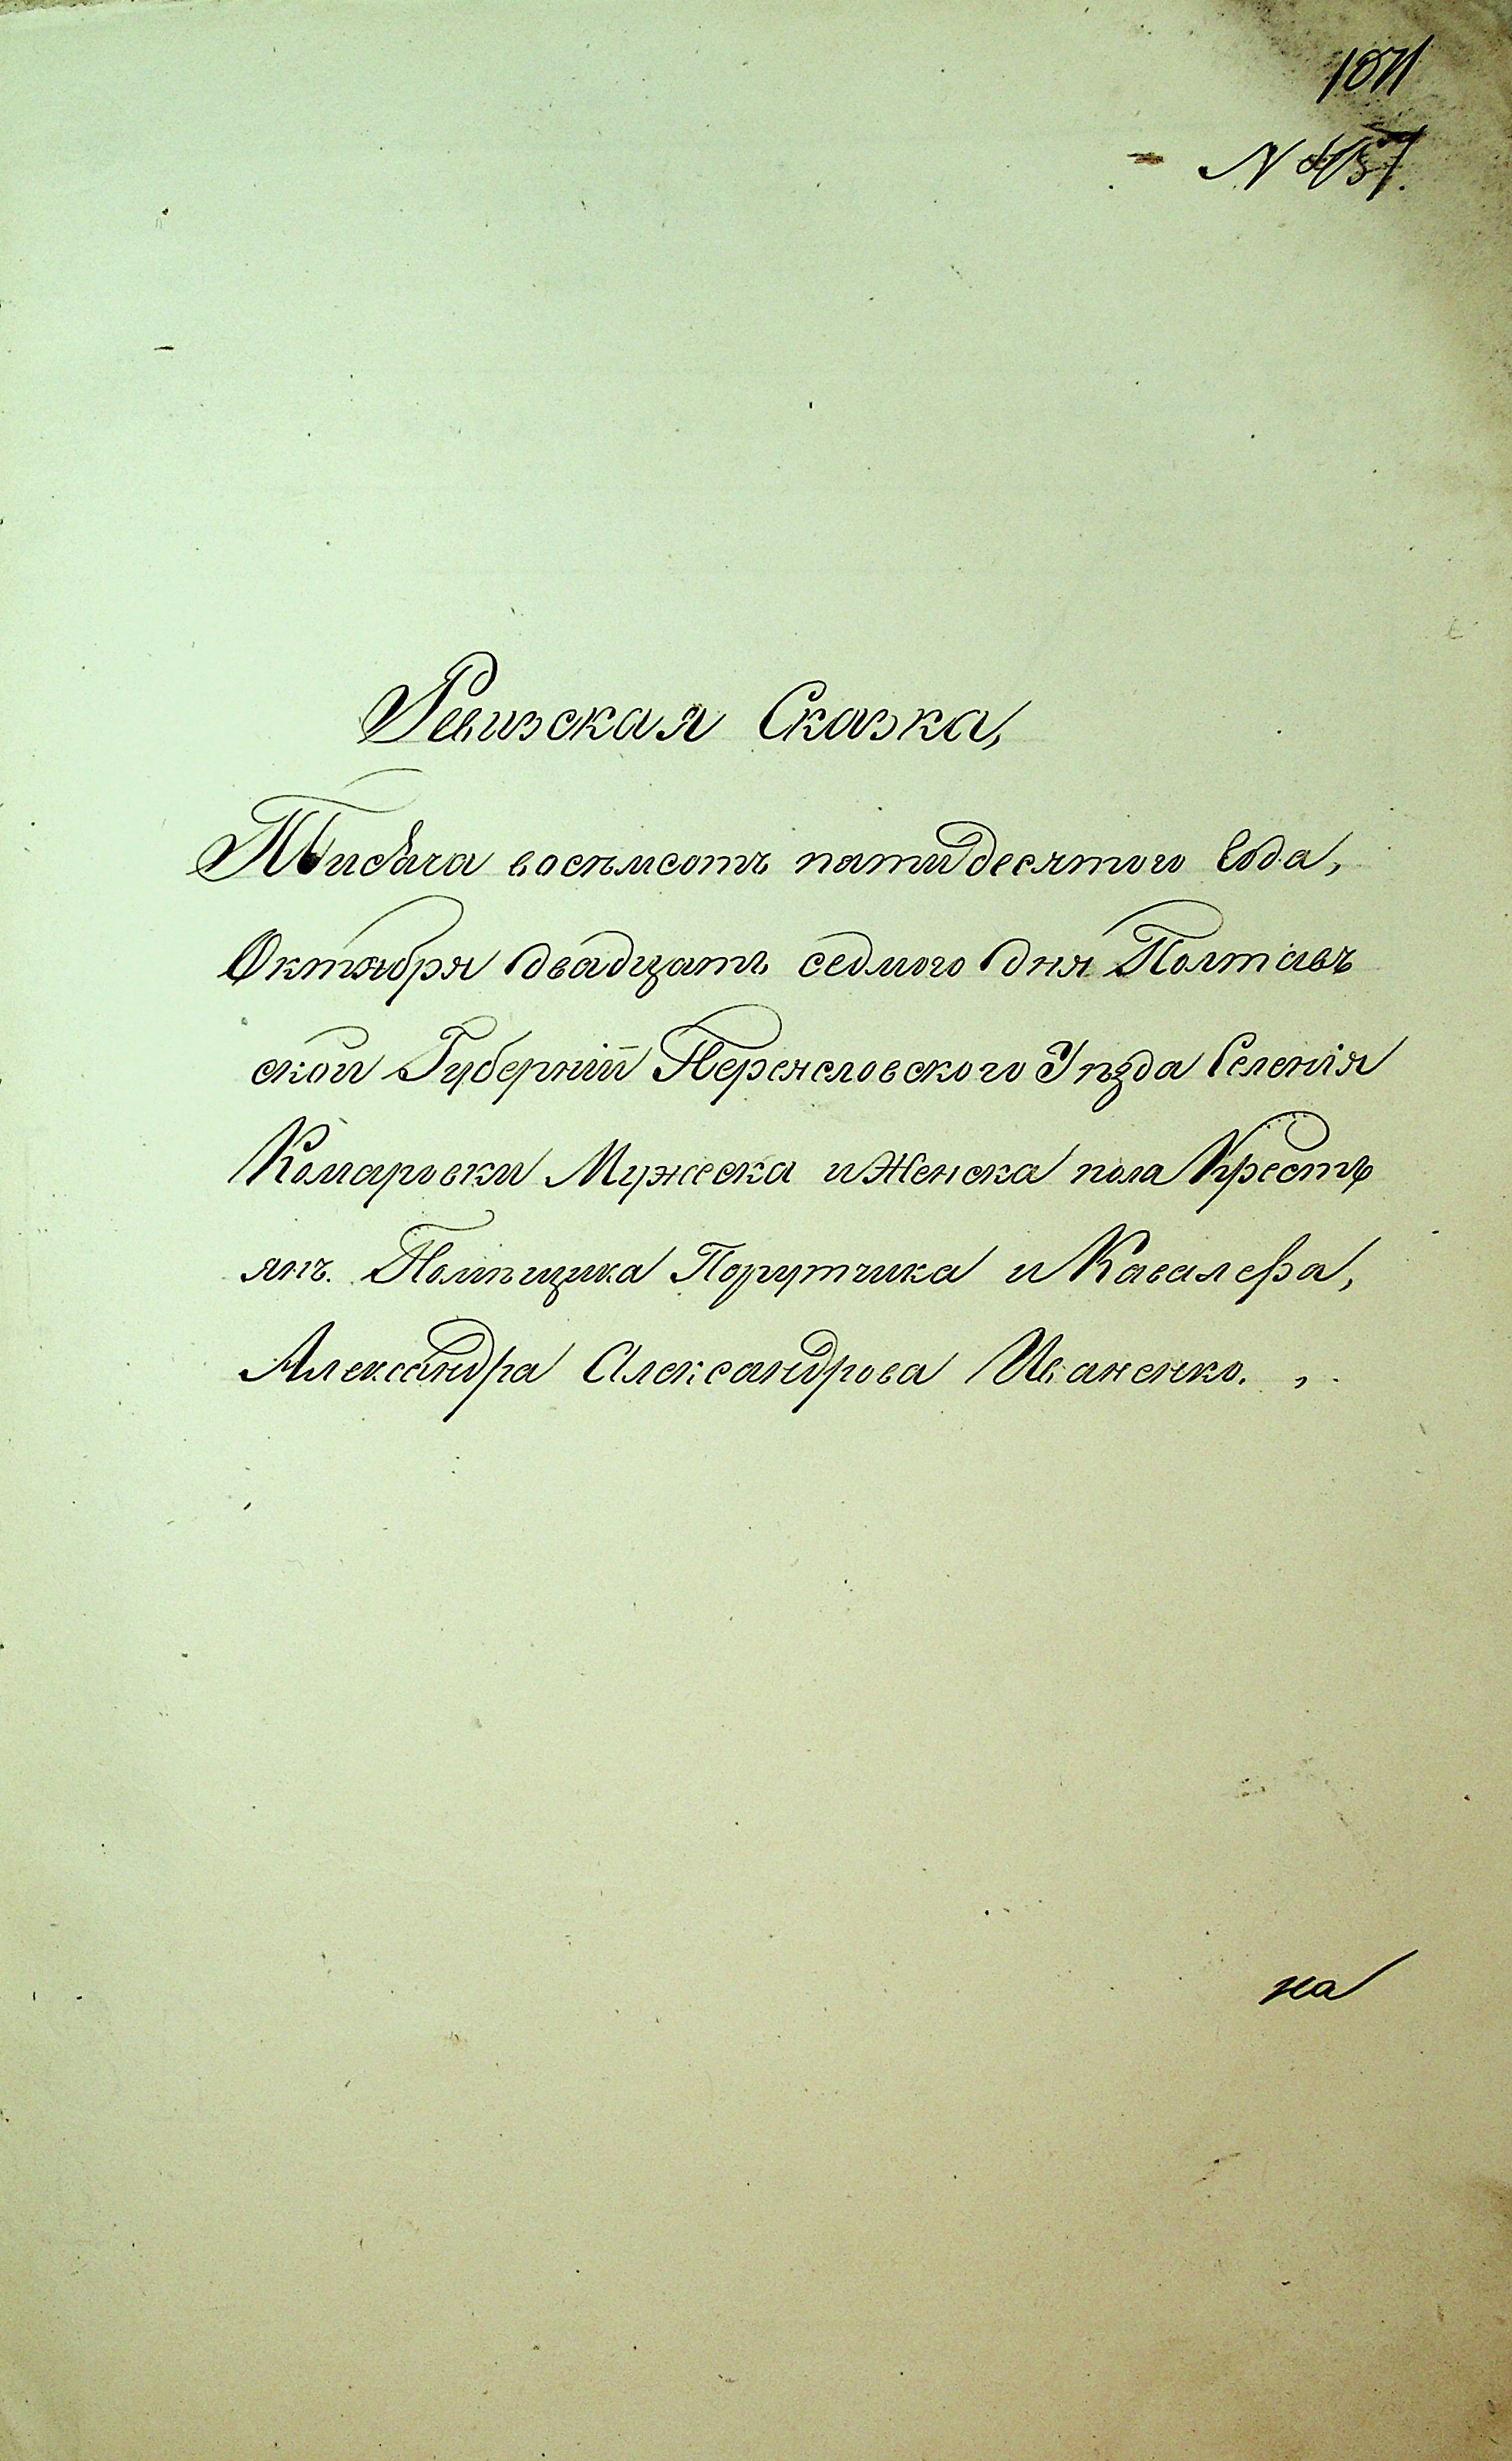 1071
N 457.
Ревизская Сказка,
Тисяча восемсотъ пятидесятого Года,
Октября двадцать седмого дня Полтавъ
ской Губерніи Переясловского Уѣзда Селенія
Комаровки Мужеска и Женска пола Кресть
янъ. Помѣщика Порутчика и Кавалера,
Александра Александрова Иваненко.
на